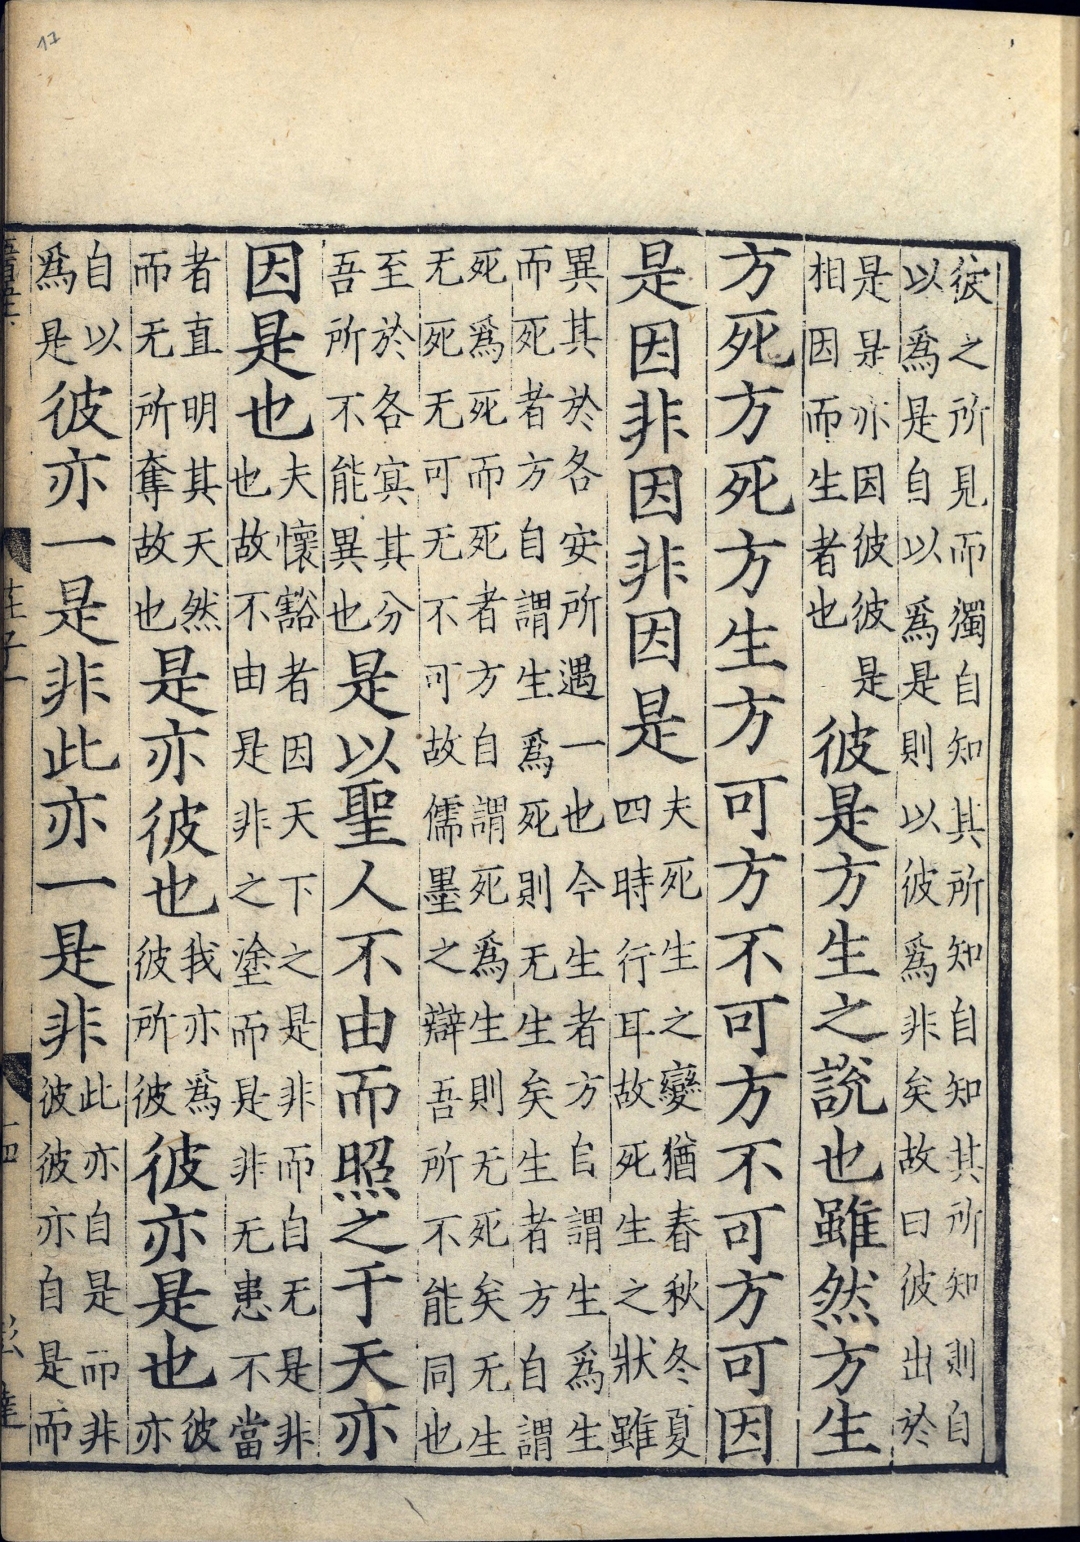 彼之所見而獨自知其所知自知其所知則自
以爲是自以爲是則以彼爲非矣故曰彼出於
是是亦因彼彼是
相因而生者也
彼是方生之說也雖然方生
方死方死方生方可方不可方不可方可因
是因非因非因是
夫死生之變猶春秋冬夏
四時行耳故死生之狀雖
異其於各安所遇一也今生者方自謂生爲生
而死者方自謂生爲死則无生矣生者方自謂
死爲死而死者方自謂死爲生則无死矣无生
无死无可无不可故儒墨之辯吾所不能同也
至於各㝠其分
吾所不能異也
是以聖人不由而照之于天亦
因是也
夫懷豁者因天下之是非而自无是非
也故不由是非之塗而是非无患不當
者直明其天然
而无所奪故也
是亦彼也
我亦爲
彼所彼
彼亦是也
彼
亦
自以
爲是
彼亦一是非此亦一是非
此亦自是而非
彼彼亦自是而